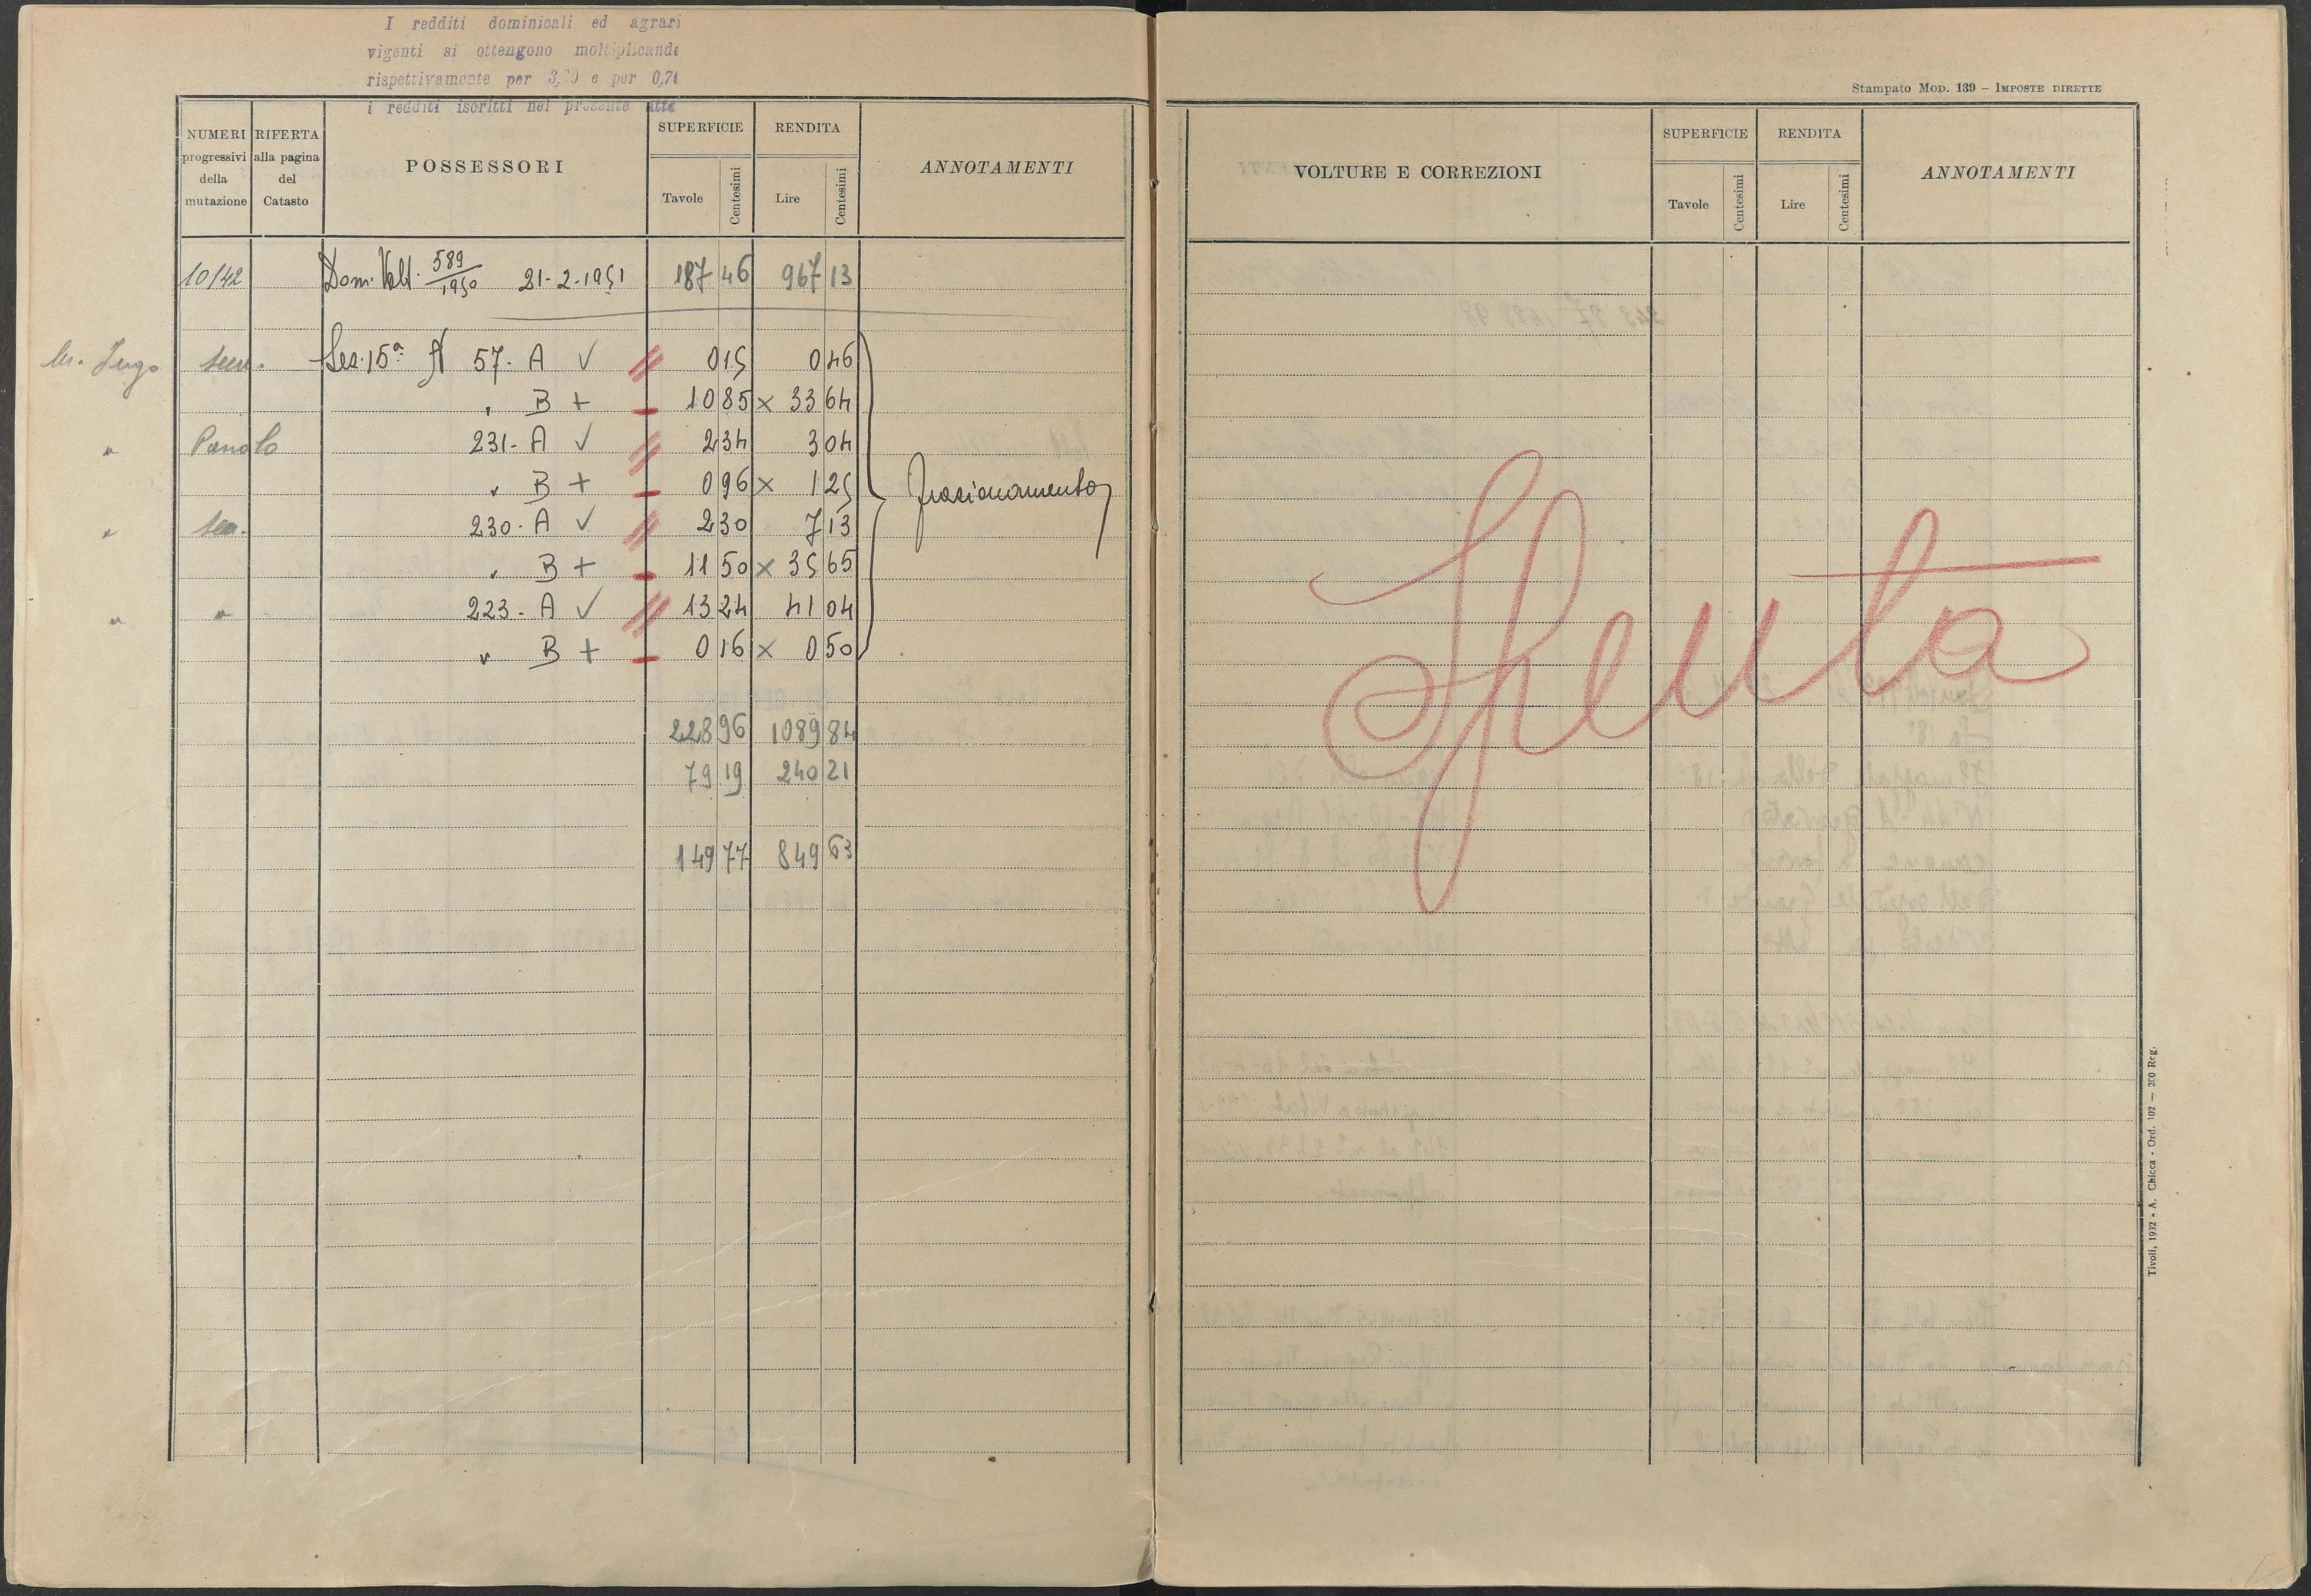 I redditi dominicali ed agrari
vigenti si ottengono moltiplicando
rispettivamente per 3,20 e per 0,70
i redditi iscritti nel presente atto
NUMERI progressivi della mutazione
RIFERTA alla pagina del Catasto
POSSESSORI
SUPERFICIE
Tavole Centesimi
RENDITA
Lire Centesimi
ANNOTAMENTI
10/42 Dom. Volt. 589/1950 21-2-1951 187 46 967 13
sem. Sez. 15ª N 57 - A ✓ 0 15 0 46
B + 10 85 x 33 64
" 231 - A ✓ 2 34 3 04
" B + 0 96 x 1 25
" 230 - A ✓ 2 30 7 13
" B + 11 50 x 35 65
" " 223 - A ✓ 13 24 41 04
" B + 0 16 x 0 50
frazionamento
228 96 1089 84
79 19 240 21
149 77 849 63
Stampato Mod. 139 – Imposte dirette
VOLTURE E CORREZIONI
SUPERFICIE
Tavole Centesimi
RENDITA
Lire Centesimi
ANNOTAMENTI
Spenta
Tivoli, 1932 - A. Chicca - Ord. 102 — 200 Reg.